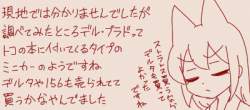 現地では分かりませんでしたが
調べてみたところデル・プラドって
トコの本に付いてくるタイプの
ミニカーのようですね
デルタや156も売られてて
買うかなやんでました
ストラトスと
デルタを買って
おりました